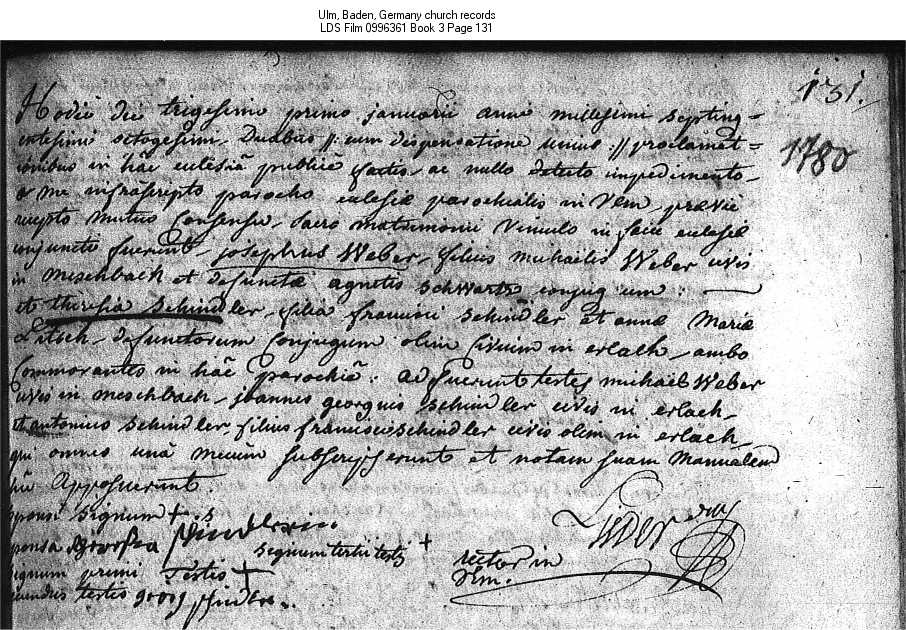 Ulm, Baden, Germany church records
LDS Film 0996361 Book 3 Page 131
131.
1780
Hodie die trigesimo primo januarii anni millesimi septing=
entesimi octogesimi, Duabus //: cum dispensatione unius :// proclamat=
ionibus in hâc ecclesiâ publice factis, ac nullo detecto impedimento,
a me infrascripto parocho ecclesiæ parochialis in Ulm, prævie
recepto mutuo Consensu, Sacro matrimonii Vinculo in facie ecclesiæ
conjuncti fuerunt, josephus Weber, filius michaëlis Weber civis
in meschbach et defunctæ agnetis schwartz conjugum: —
et theresia schindler, filia francisci schindler et annæ Mariæ
defunctorum Conjugum olim Civium in erlach, ambo
Commorantes in hâc parochiâ: adfuerunt testes michaël Weber
civis in meschbach, joannes georgius schindler civis in erlach,
et antonius schindler filius francisci schindler civis olim in erlach,
qui omnes unà mecum subscripserunt et notam suam Manualem
apposuerunt.
sponsi signum + s
sponsa
signum tertii testis +
signum primi Testis +
secundus testis
rector in
Ulm.